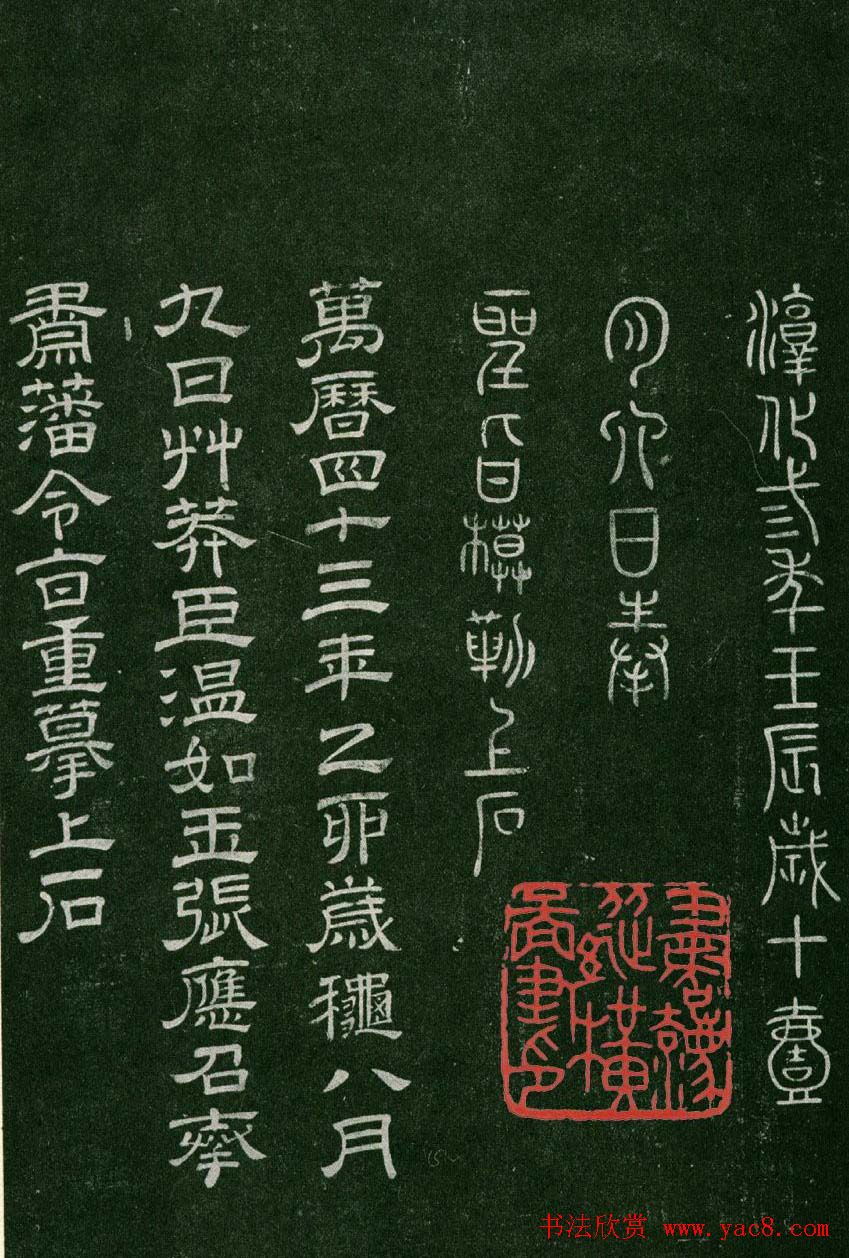 淳化弎年壬辰歲十壹
月六日奉
聖旨模勒上石
萬曆四十三年乙卯歲龝八月
九日艸莽臣温如玉張應召奉
肅藩令旨重摹上石
書法欣赏 www.yac8.com